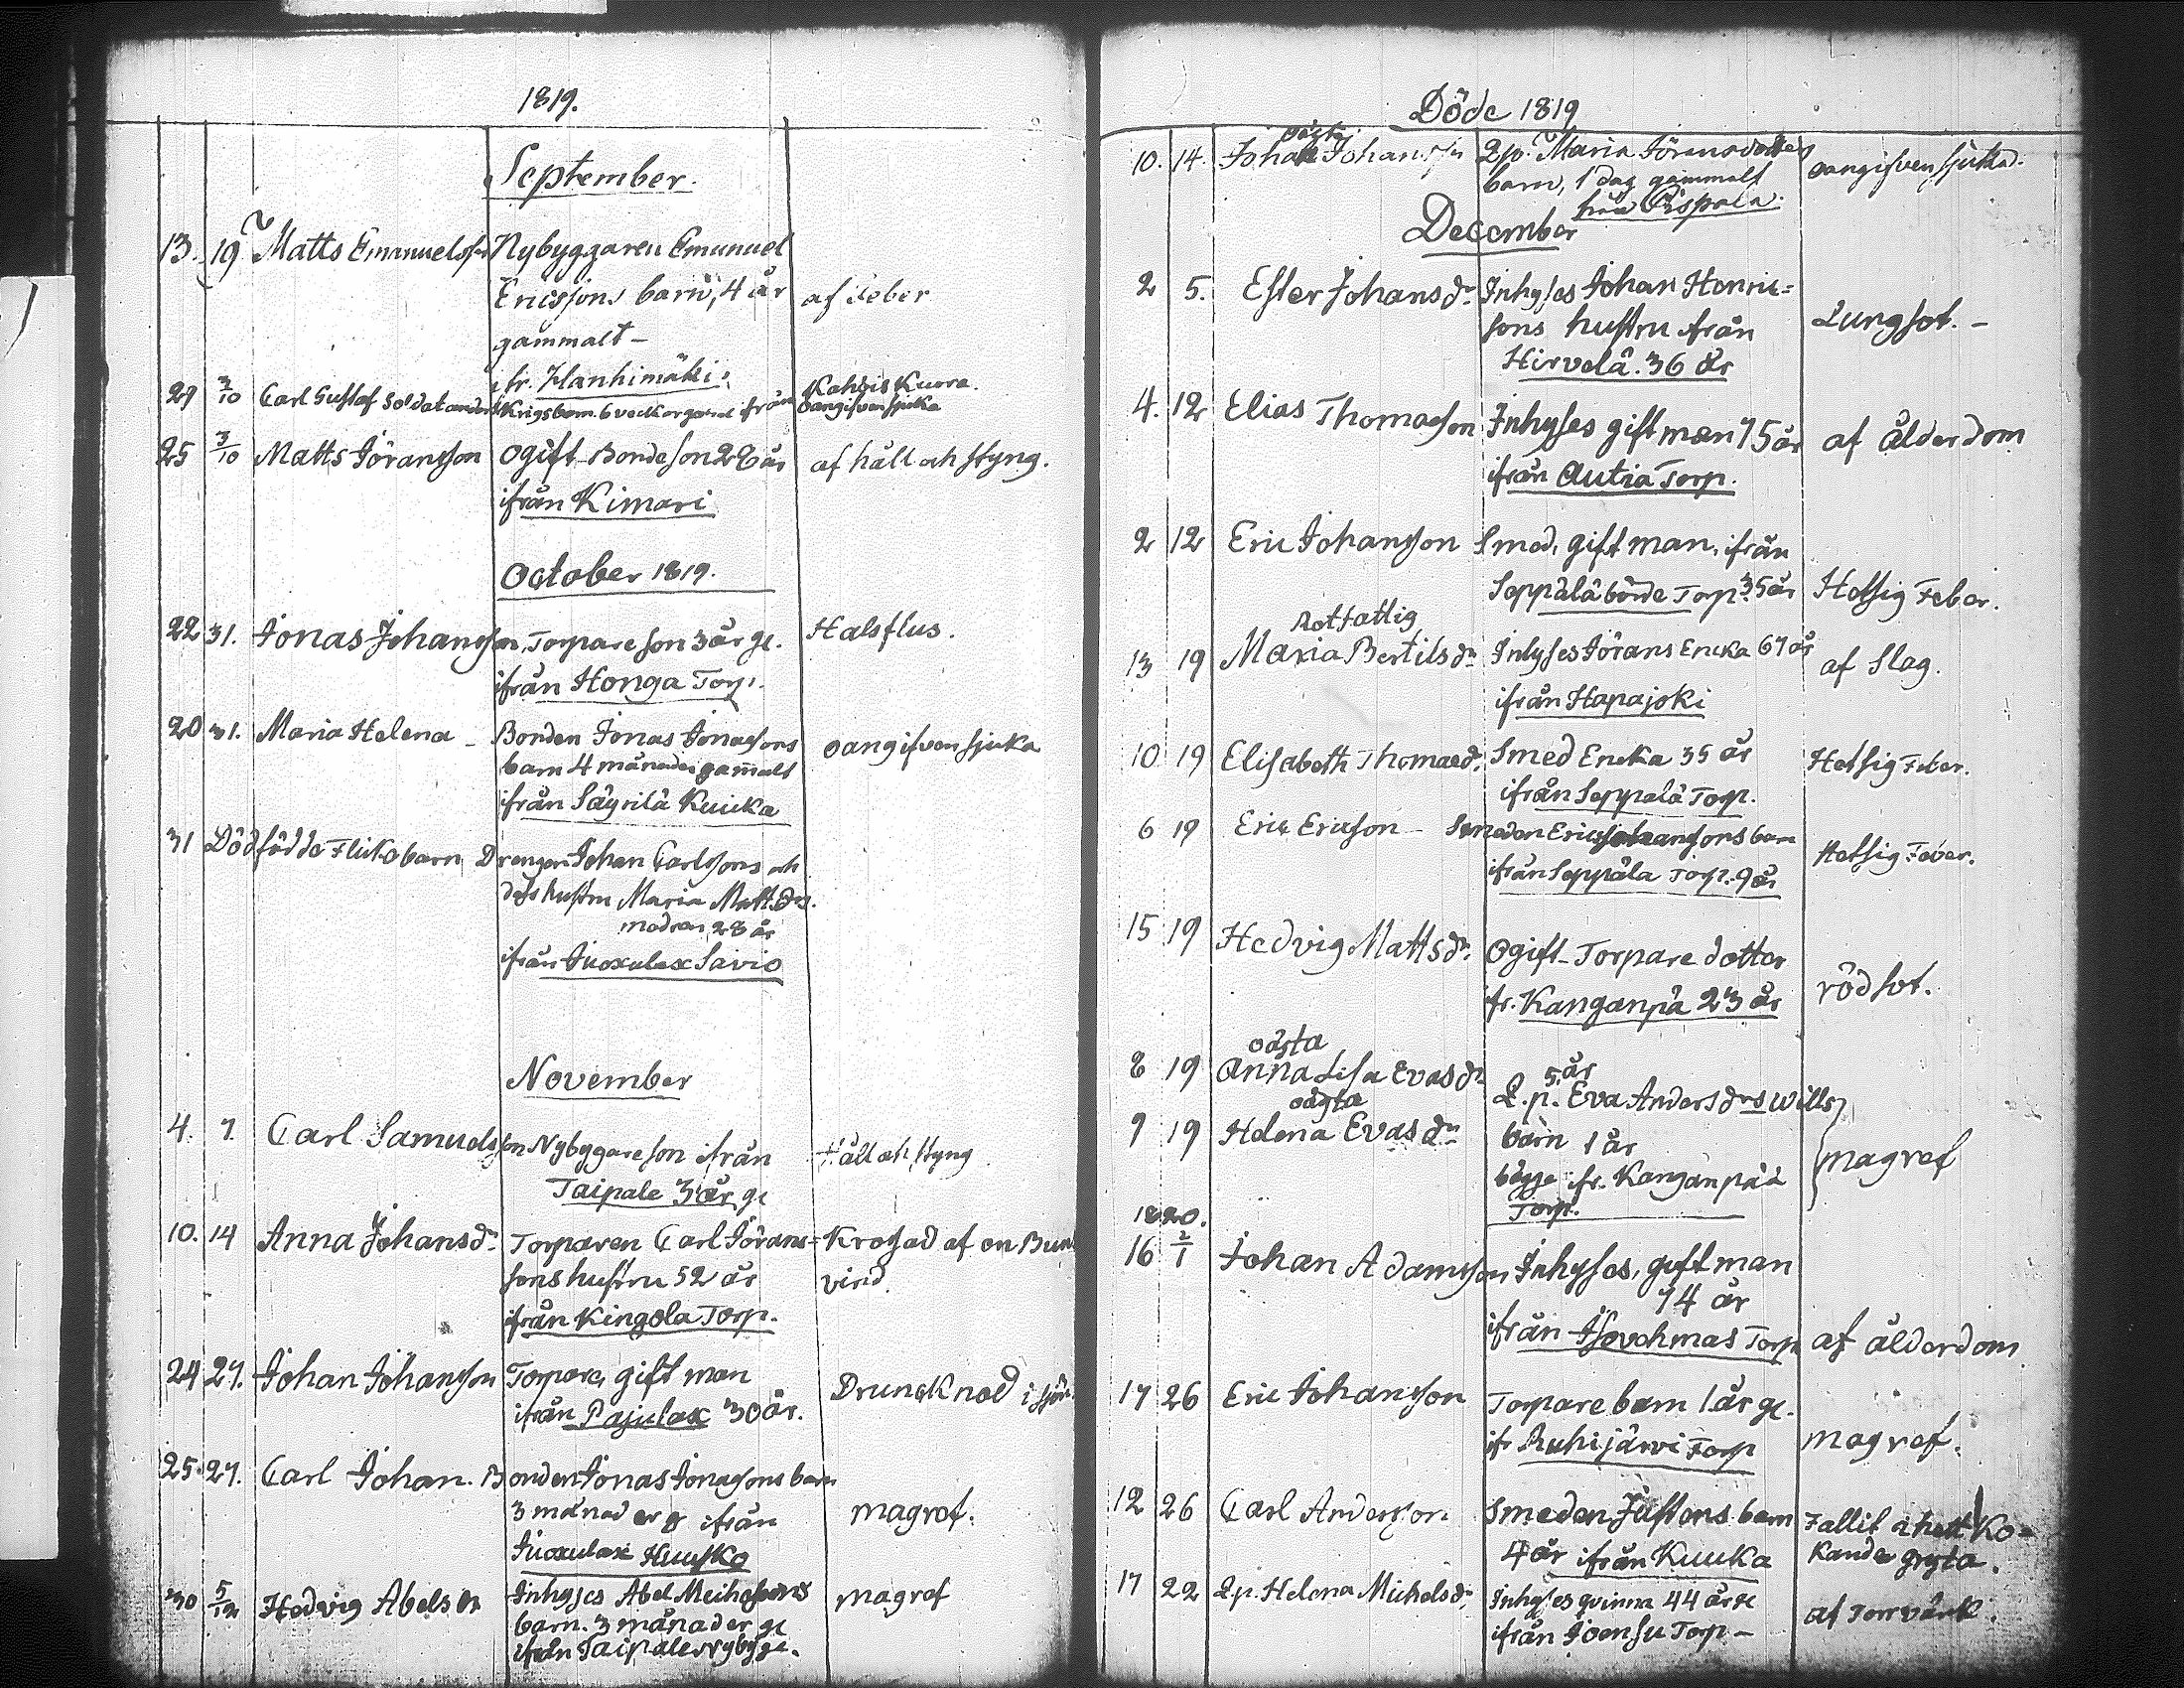 1819.
September.
13. 19 Matts Emanuelsson Nybyggaren Emanuel
Ericssons barn, 4 år af feber
gammalt –
fr. Hanhimäki.
29 3/10 Carl Gustaf Soldatens Krigsbarn. 6 veckor gamal ifrån Kahois Kuora.
oangifven sjuka
25 3/10 Matts Jöransson Ogift Bondeson 28 år af håll och styng.
ifrån Kimari
October 1819.
22 31. Jonas Johansson, Torpareson 3 år gl. Halsflus.
ifrån Honga Torp.
20 31. Maria Helena – Bonden Jonas Jonassons oangifven sjuka
barn 4 månader gam̄alt
ifrån Säyrilä Kuuka
31 Dödfödde Flickobarn Drengen Johan Carlssons och
dess hustru Maria Matts dr.
modren 28 år
ifrån Juoxulax Savio
November
4. 7. Carl Samuelsson Nybygareson ifrån Håll och styng
Taipale 3 år gl
10. 14 Anna Johansdr. Torparen Carl Jörans= Krossad af en Bun
sons hustru 52 år vind.
ifrån Kingola Torp.
24 27. Johan Johansson Torpare, gift man Druncknad i sjön
ifrån Pajulax 30 år.
25. 27. Carl Johan. Bonden Jonas Jonassons barn
3 månader g ifrån magref.
Juoxulax Huusko
30 5/12 Hedvig Abels dr Inhyses Abel Meihssons magref
barn. 3 månader gl
ifrån Taipale nybyge.
Döde 1819
oägta
10. 14. Johan Johansson Qp. Maria Jöransdotters oangifven sjukd.
barn, 1 dag gammalt
från Pispala.
December
2 5. Ester Johansdr. Inhyses Johan Henric=
sons hustru ifrån Lungsot. –
Hirvelä. 36 år
4. 12 Elias Thomasson Inhyses gift man 75 år af ålderdom
ifrån Autia Torp.
2 12 Eric Johansson Smed, gift man, ifrån
Seppälä börde Torp. 35 år Hetsig Feber.
Rotfattig
13 19 Maria Bertilsdr Inhyses Jörans Encka 67 år af Slag.
ifrån Hapajoki
10 19 Elisabeth Thomasdr. Smed Encka 35 år Hetsig Feber.
ifrån Seppälä Torp.
6 19 Eric Ericson – Smeden Eric Johanssons barn
ifrån Seppäla Torp. 9 år Hetsig Feber.
15 19 Hedvig Mattsdr. Ogift Torpare dotter
fr. Kanganpä 23 år rödsot.
oägta
8 19 Anna Lisa Evas dr 5 år
Q.p. Eva Andersdrs Wills
oägta
9 19 Helena Evas dr barn 1 år
bägge fr. Kanganpää magref
Torp.
1820.
16 2/1 Johan Adamsson Inhyses, gift man
74 år
ifrån Isovehmas Torp af ålderdom
17 26 Eric Johansson Torpare barn 1 år gl.
ifr Ruhijärvi Torp magref.
12 26 Carl Andersson Smeden Justens barn Fallit i hett Ko=
4 år ifrån Kuuka kande gryta.
17 22 Qp. Helena Michelsdr. Inhyses qvinna 44 år gl af Torrvärk.
ifrån Joensu Torp –